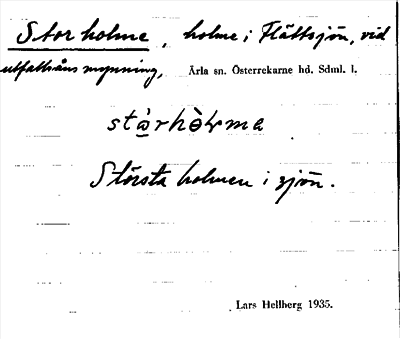 Storholme, holme i Flättsjön, vid
utfallsåns mynning, Ärla sn. Österrekarne hd. Sdml. l.
stὰ̲rhὸłma
Största holmen i sjön.
Lars Hellberg 1935.